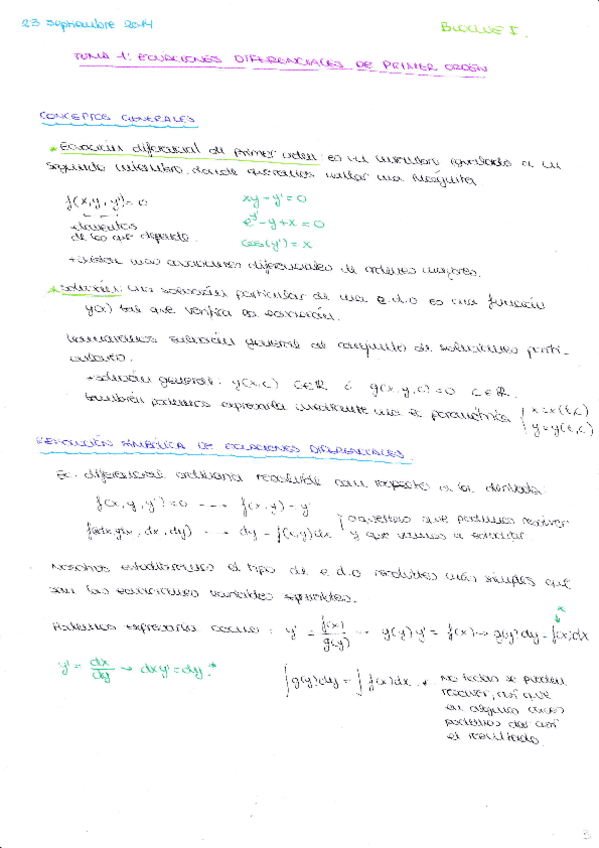 23 septiembre 2014
BLOQUE I.
TEMA 1: ECUACIONES DIFERENCIALES DE PRIMER ORDEN
CONCEPTOS GENERALES
* Ecuación diferencial de primer orden: es un miembro igualado a un
segundo miembro, donde queremos hallar una incógnita.
f(x,y,y')=0
xy-y'=0
elementos
de los que depende.
e^y'-y+x=0
cos(y')=x
+ Existen más ecuaciones diferenciales de órdenes mayores.
* Solución: Una solución particular de una e.d.o es una función
y(x) tal que verifica la ecuación.
Llamaremos solución general al conjunto de soluciones parti-
culares.
→ solución general: y(x,c) c∈R ó g(x,y,c)=0 c∈R.
también podemos expresarla mediante una ec paramétrica { x=x(t,c)
y=y(t,c)
RESOLUCIÓN SIMBÓLICA DE ECUACIONES DIFERENCIALES.
Ec. diferencial ordinaria resoluble con respecto a la derivada:
f(x,y,y')=0 ---→ f(x,y)=y'
dy=f(x,y)dx
aquellas que podemos resolver
y que vamos a estudiar.
Nosotros estudiaremos el tipo de e.d.o resolubles más simples que
son las ecuaciones variables separables.
Podemos expresarla como: y' = f(x)/g(y) → g(y)y' = f(x) → g(y)dy = f(x)dx
y' = dx/dy → dxy'=dy.*
∫g(y)dy = ∫f(x)dx. * No todas se pueden
resolver, así que
en algunos casos
podemos dar así
el resultado.
3